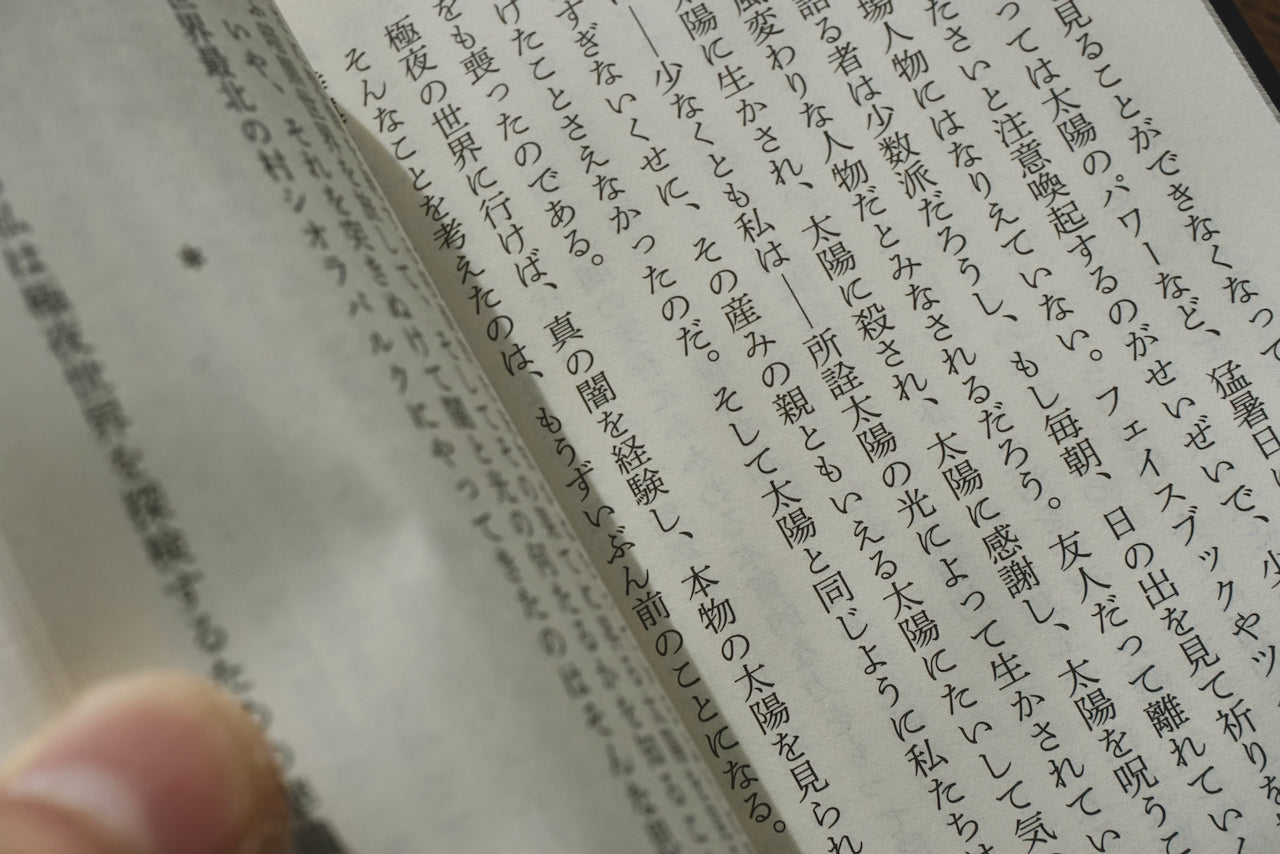 見ることができなくなって
っては太陽のパワーなど、猛暑日に
たさいと注意喚起するのがせいぜいで、小
場人物にはなりえていない。フェイスブックやツ
語る者は少数派だろうし、もし毎朝、日の出を見て祈りを
風変わりな人物だとみなされるだろう。友人だって離れていく
太陽に生かされ、太陽に殺され、太陽に感謝し、太陽を呪うこ
――少なくとも私は――所詮太陽の光によって生かされてい
すぎないくせに、その産みの親ともいえる太陽にたいして気
けたことさえなかったのだ。そして太陽と同じように私たちは
をも喪ったのである。
極夜の世界に行けば、真の闇を経験し、本物の太陽を見られ
そんなことを考えたのは、もうずいぶん前のことになる。
いや、それを突きぬけて闇と光の何たるかを知るこ
世界最北の村シオラパルクにやってきたのはそんな思
*
私は極夜世界を探検するため